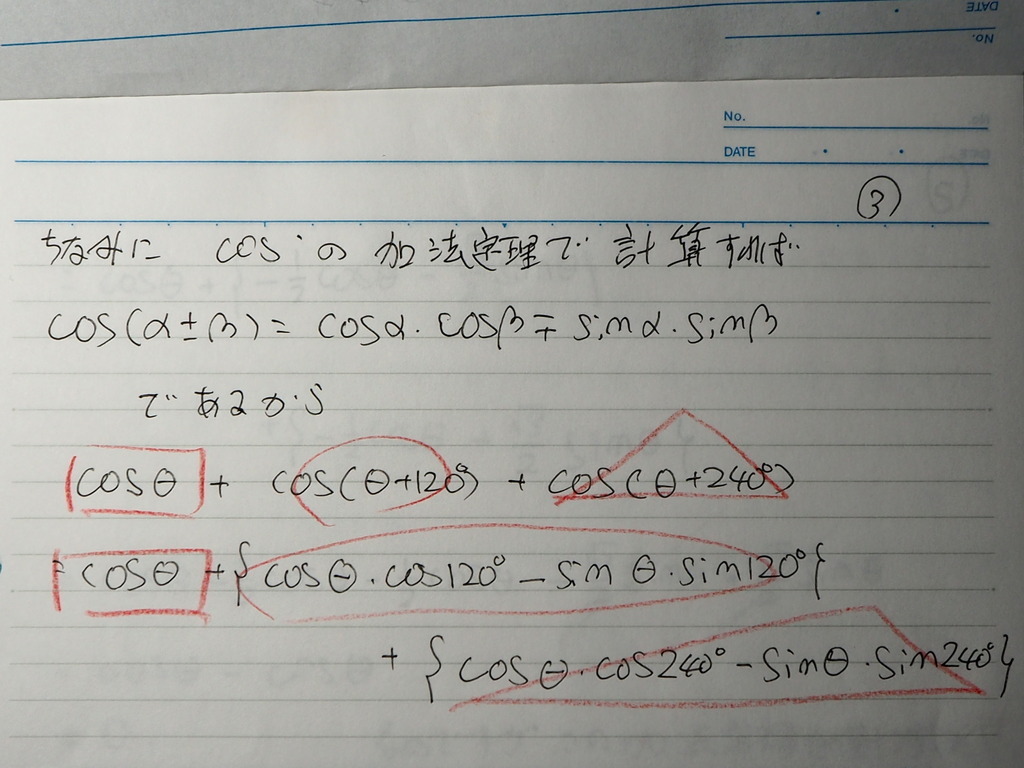 No.
DATE
③
ちなみに cosの加法定理で計算すれば
cos(α±β)= cosα・cosβ∓sinα・sinβ
であるから
cosθ + cos(θ+120°) + cos(θ+240°)
= cosθ +{cosθ・cos120°－sinθ・sin120°}
+ {cosθ・cos240°－sinθ・sin240°}